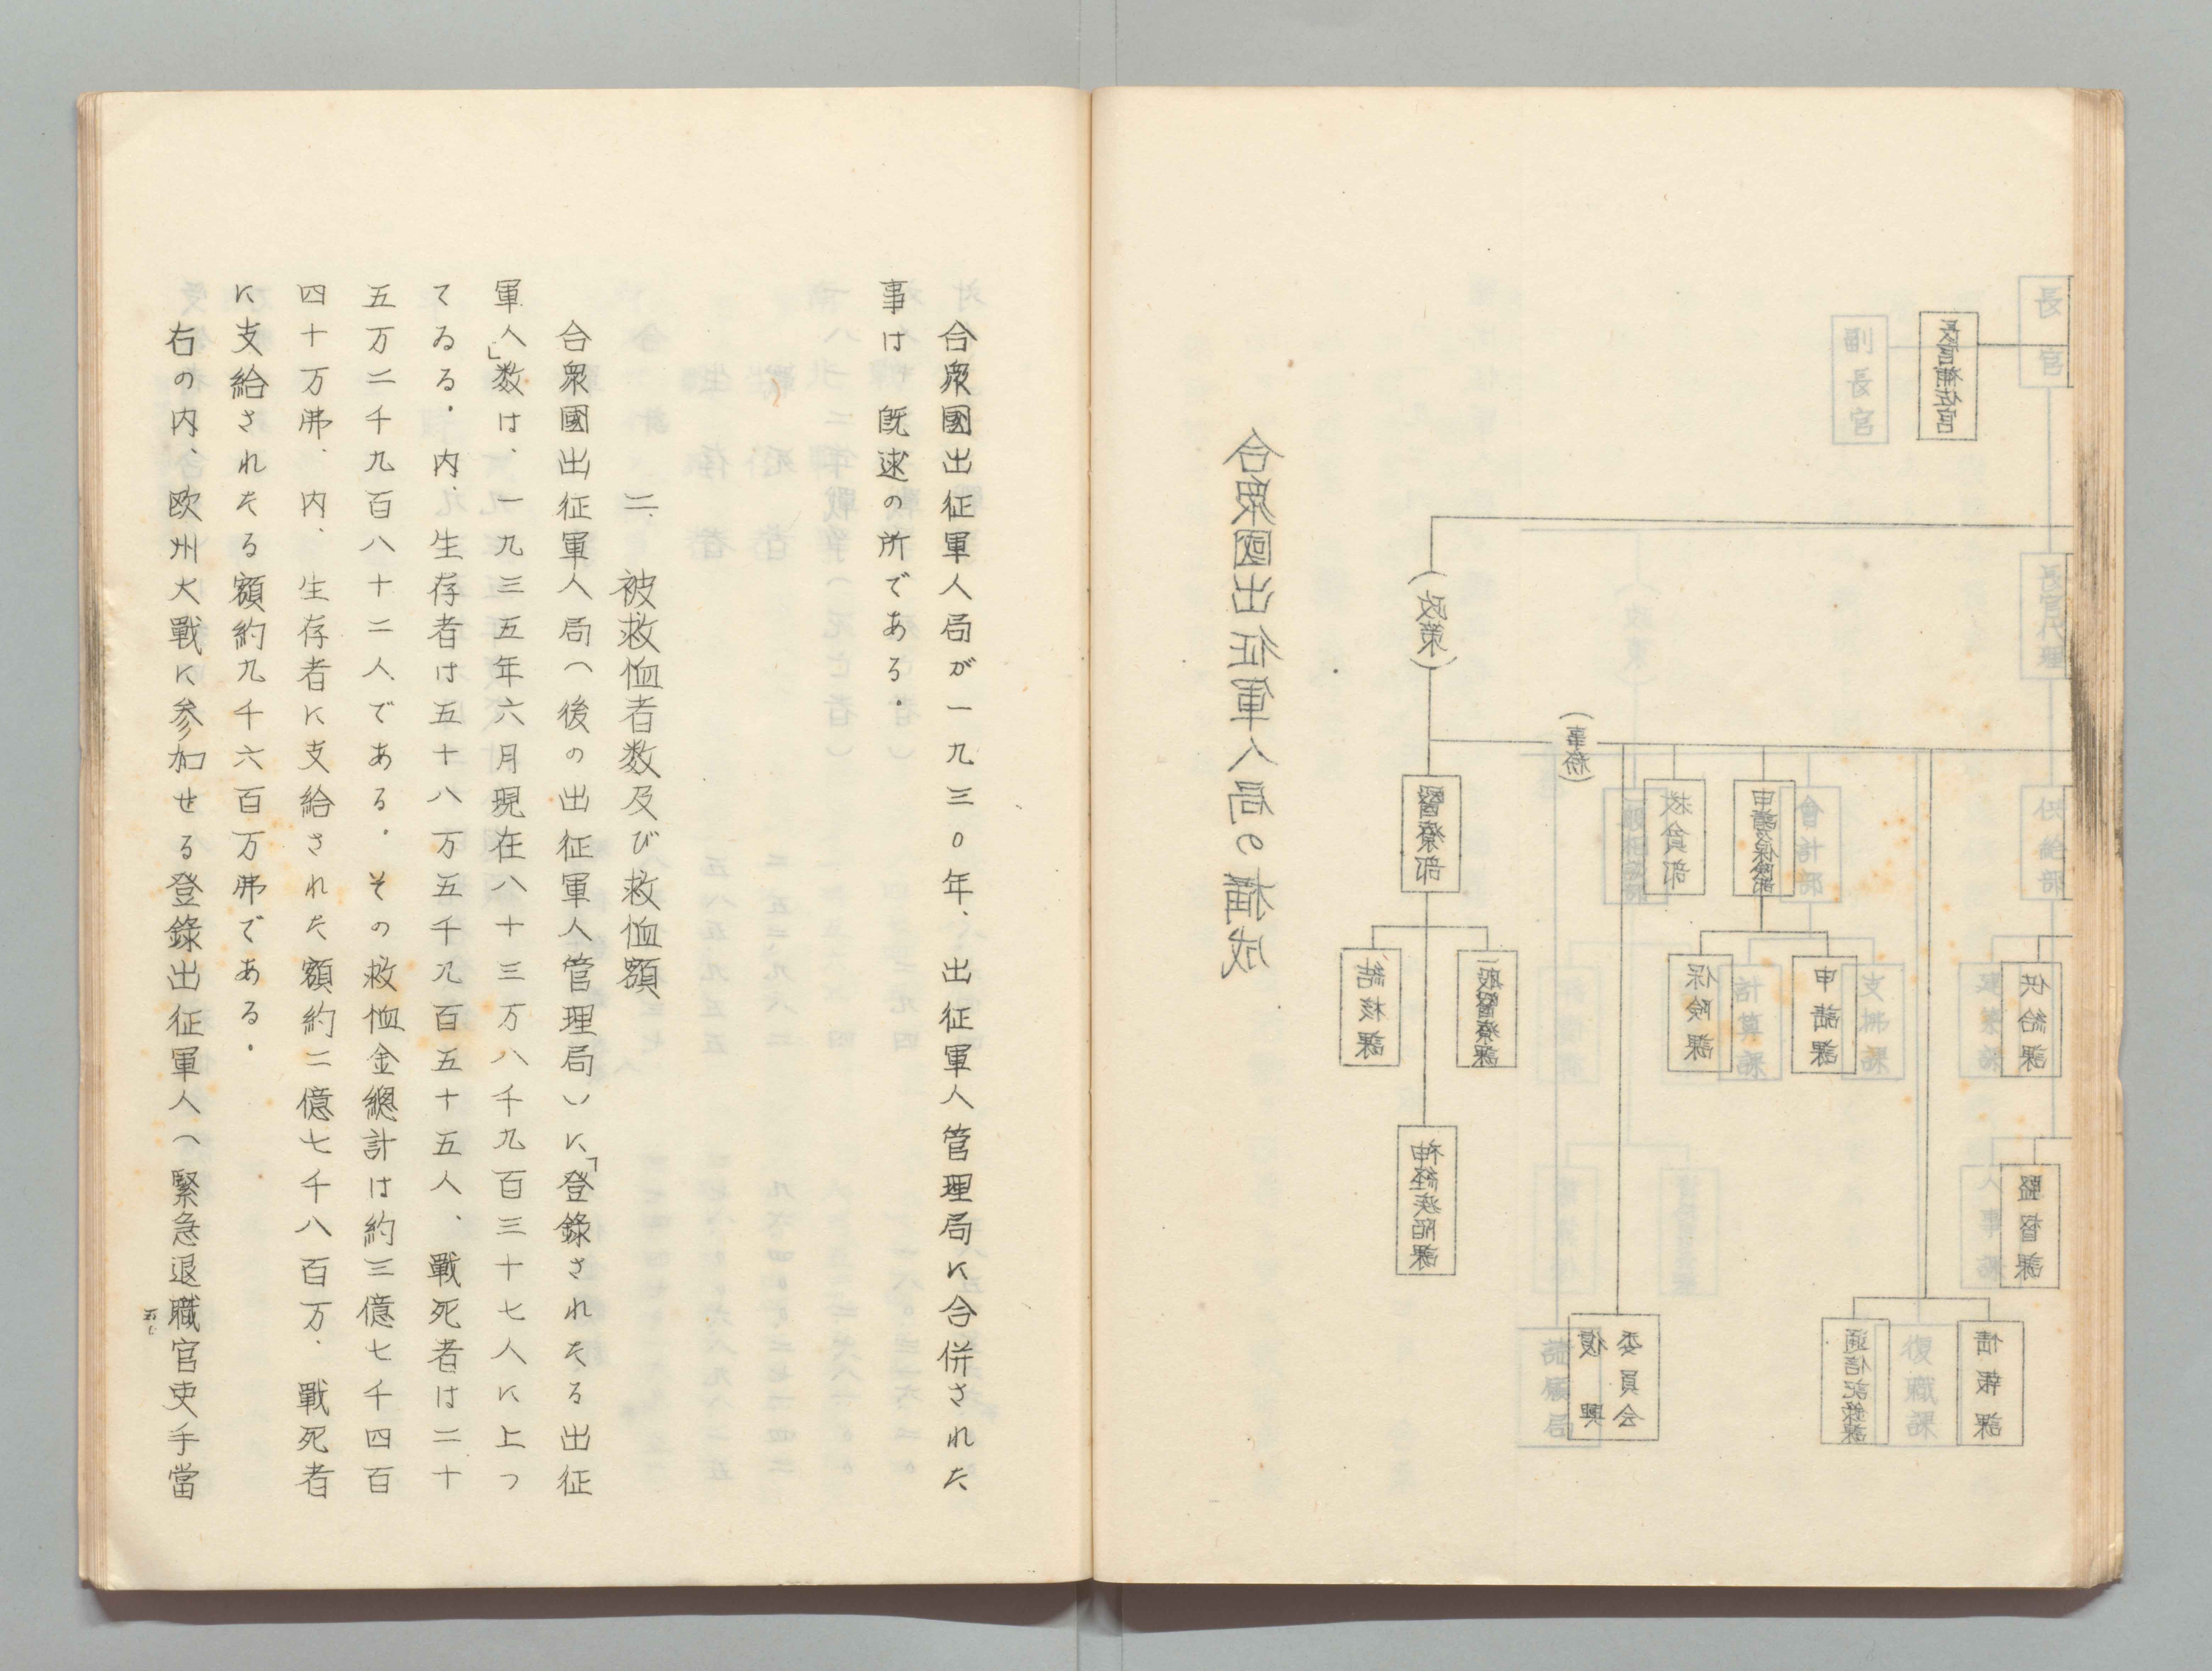 合衆國出征軍人局の構成
長官
長官補佐官
副長官
長官代理
(政策)
(事務)
醫療部
救貧部
申請及保険部
會計部
供給部
結核課
一般醫療課
保険課
計算課
申請課
支拂課
建築課
供給課
神経疾病課
人事課
監督課
復興
委員会
通信記錄課
復職課
情報課
合衆國出征軍人局が一九三〇年、出征軍人管理局に合併された
事は既述の所である。
二、被救恤者数及び救恤額
合衆國出征軍人局(後の出征軍人管理局)に「登錄されたる出征
軍人」数は、一九三五年六月現在八十三万八千九百三十七人に上つ
てゐる。内、生存者は五十八万五千九百五十五人、戰死者は二十
五万二千九百八十二人である。その救恤金總計は約三億七千四百
四十万弗、内、生存者に支給された額約二億七千八百万、戰死者
に支給されたる額約九千六百万弗である。
右の内、欧州大戰に参加せる登錄出征軍人(緊急退職官吏手當
五七